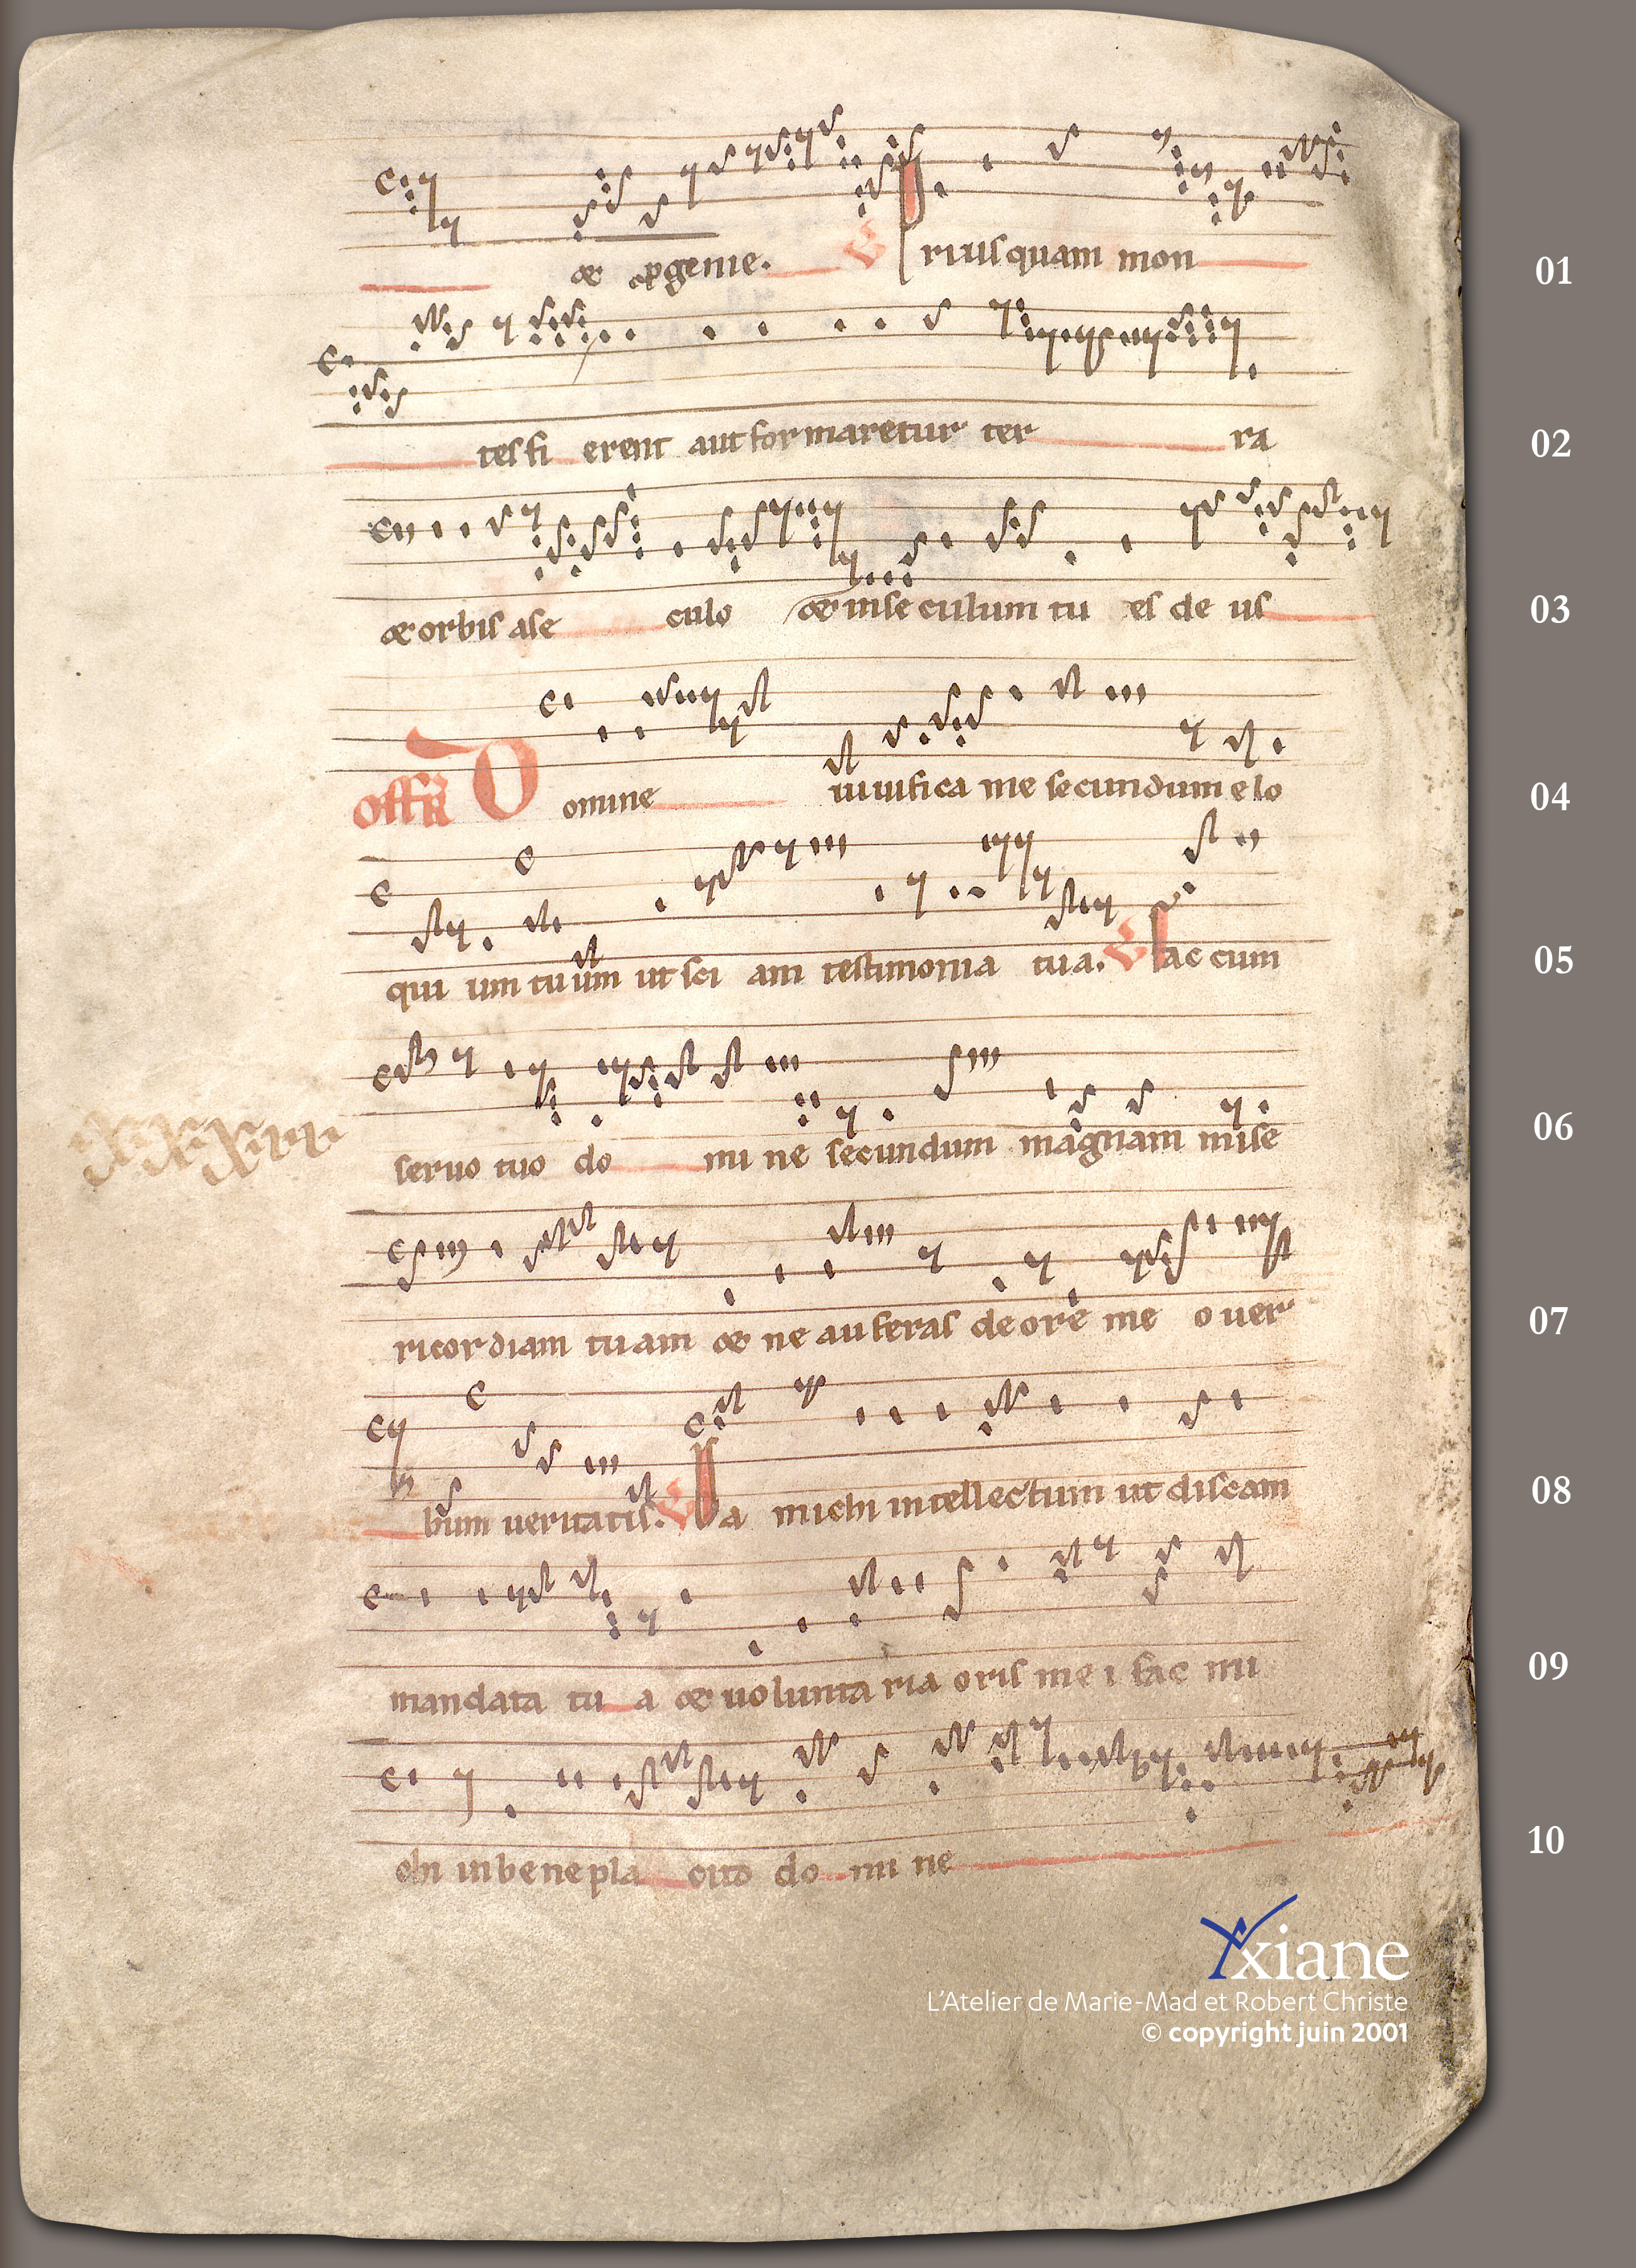 & ꝓgenie. V Priusquam mon 01
tes fi erent aut formaretur ter ra 02
& orbis a se culo & in se culum tu es de us 03
Off̄ Domine uiuifica me secundum elo 04
qui um tuum ut sci am testimonia tua. V Fac cum 05
seruo tuo do mi ne secundum magnam mise 06
ricordiam tuam & ne auferas de ore me o uer 07
bum ueritatis. V Da michi intellectum ut discam 08
mandata tu a & uoluntaria oris me i fac mi 09
chi in bene pla cito do mi ne 10
Yxiane
L'Atelier de Marie-Mad et Robert Christe
© copyright juin 2001